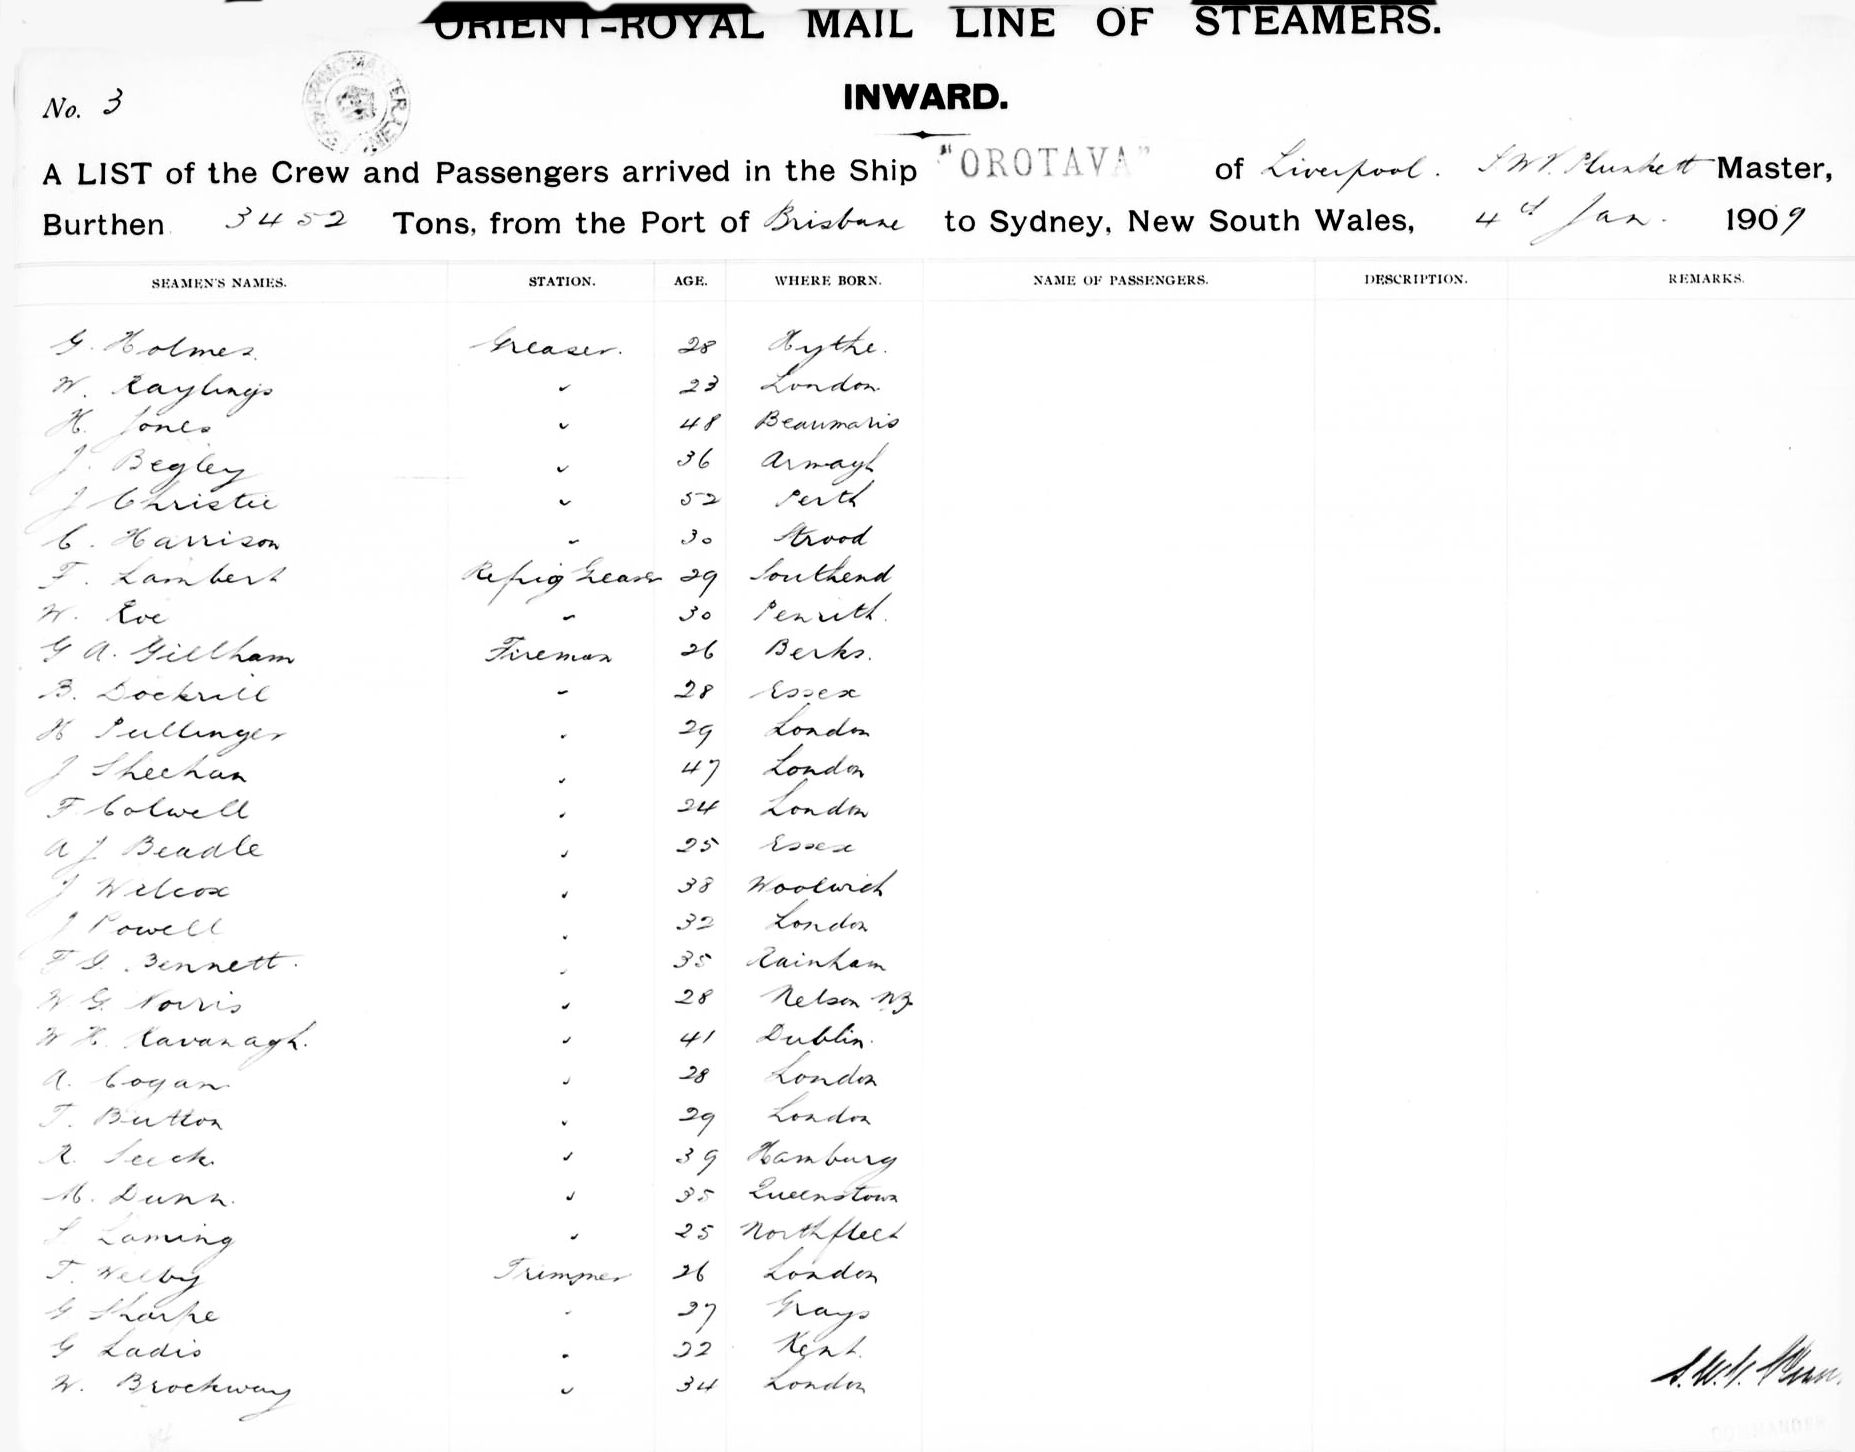 ORIENT-ROYAL MAIL LINE OF STEAMERS.
No. 3
INWARD.
A LIST of the Crew and Passengers arrived in the Ship "OROTAVA" of Liverpool. S W V. Plunkett Master,
Burthen 3452 Tons, from the Port of Brisbane to Sydney, New South Wales, 4th Jan. 1909
SEAMEN'S NAMES. STATION. AGE. WHERE BORN. NAME OF PASSENGERS. DESCRIPTION. REMARKS.
G. Holmes. Greaser. 28 Hythe.
W. Raylings " 23 London
H. Jones " 48 Beaumaris
J. Begley " 36 Armagh
J Christie " 52 Perth
C. Harrison " 30 Strood
F. Lambert Refrig Greaser 29 Southend
W. Roe " 30 Penrith.
G A. Gillham Fireman 26 Berks.
B. Dockrill " 28 Essex
H Pullinger " 29 London
J Sheehan " 47 London
F. Colwell " 24 London
A J Beadle " 25 Essex
J Wilcox " 38 Woolwich
J Powell " 32 London
F G. Bennett. " 35 Rainham
W G. Norris " 28 Nelson N.Z.
W H. Kavanagh. " 41 Dublin.
A. Cogan " 28 London
T. Button " 29 London
R. Seeck " 39 Hamburg
M. Dunn. " 35 Queenstown
S Laming " 25 Northfleet
T. Welby Trimmer 26 London
G Sharpe " 27 Grays
G Ladis " 22 Kent.
W. Brockway " 34 London
COMMANDER